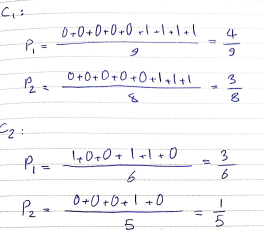 C₁:
P₁ = 0+0+0+0+0+1+1+1+1 / 9 = 4/9
P₂ = 0+0+0+0+0+1+1+1 / 8 = 3/8
C₂:
P₁ = 1+0+0+1+1+0 / 6 = 3/6
P₂ = 0+0+0+1+0 / 5 = 1/5